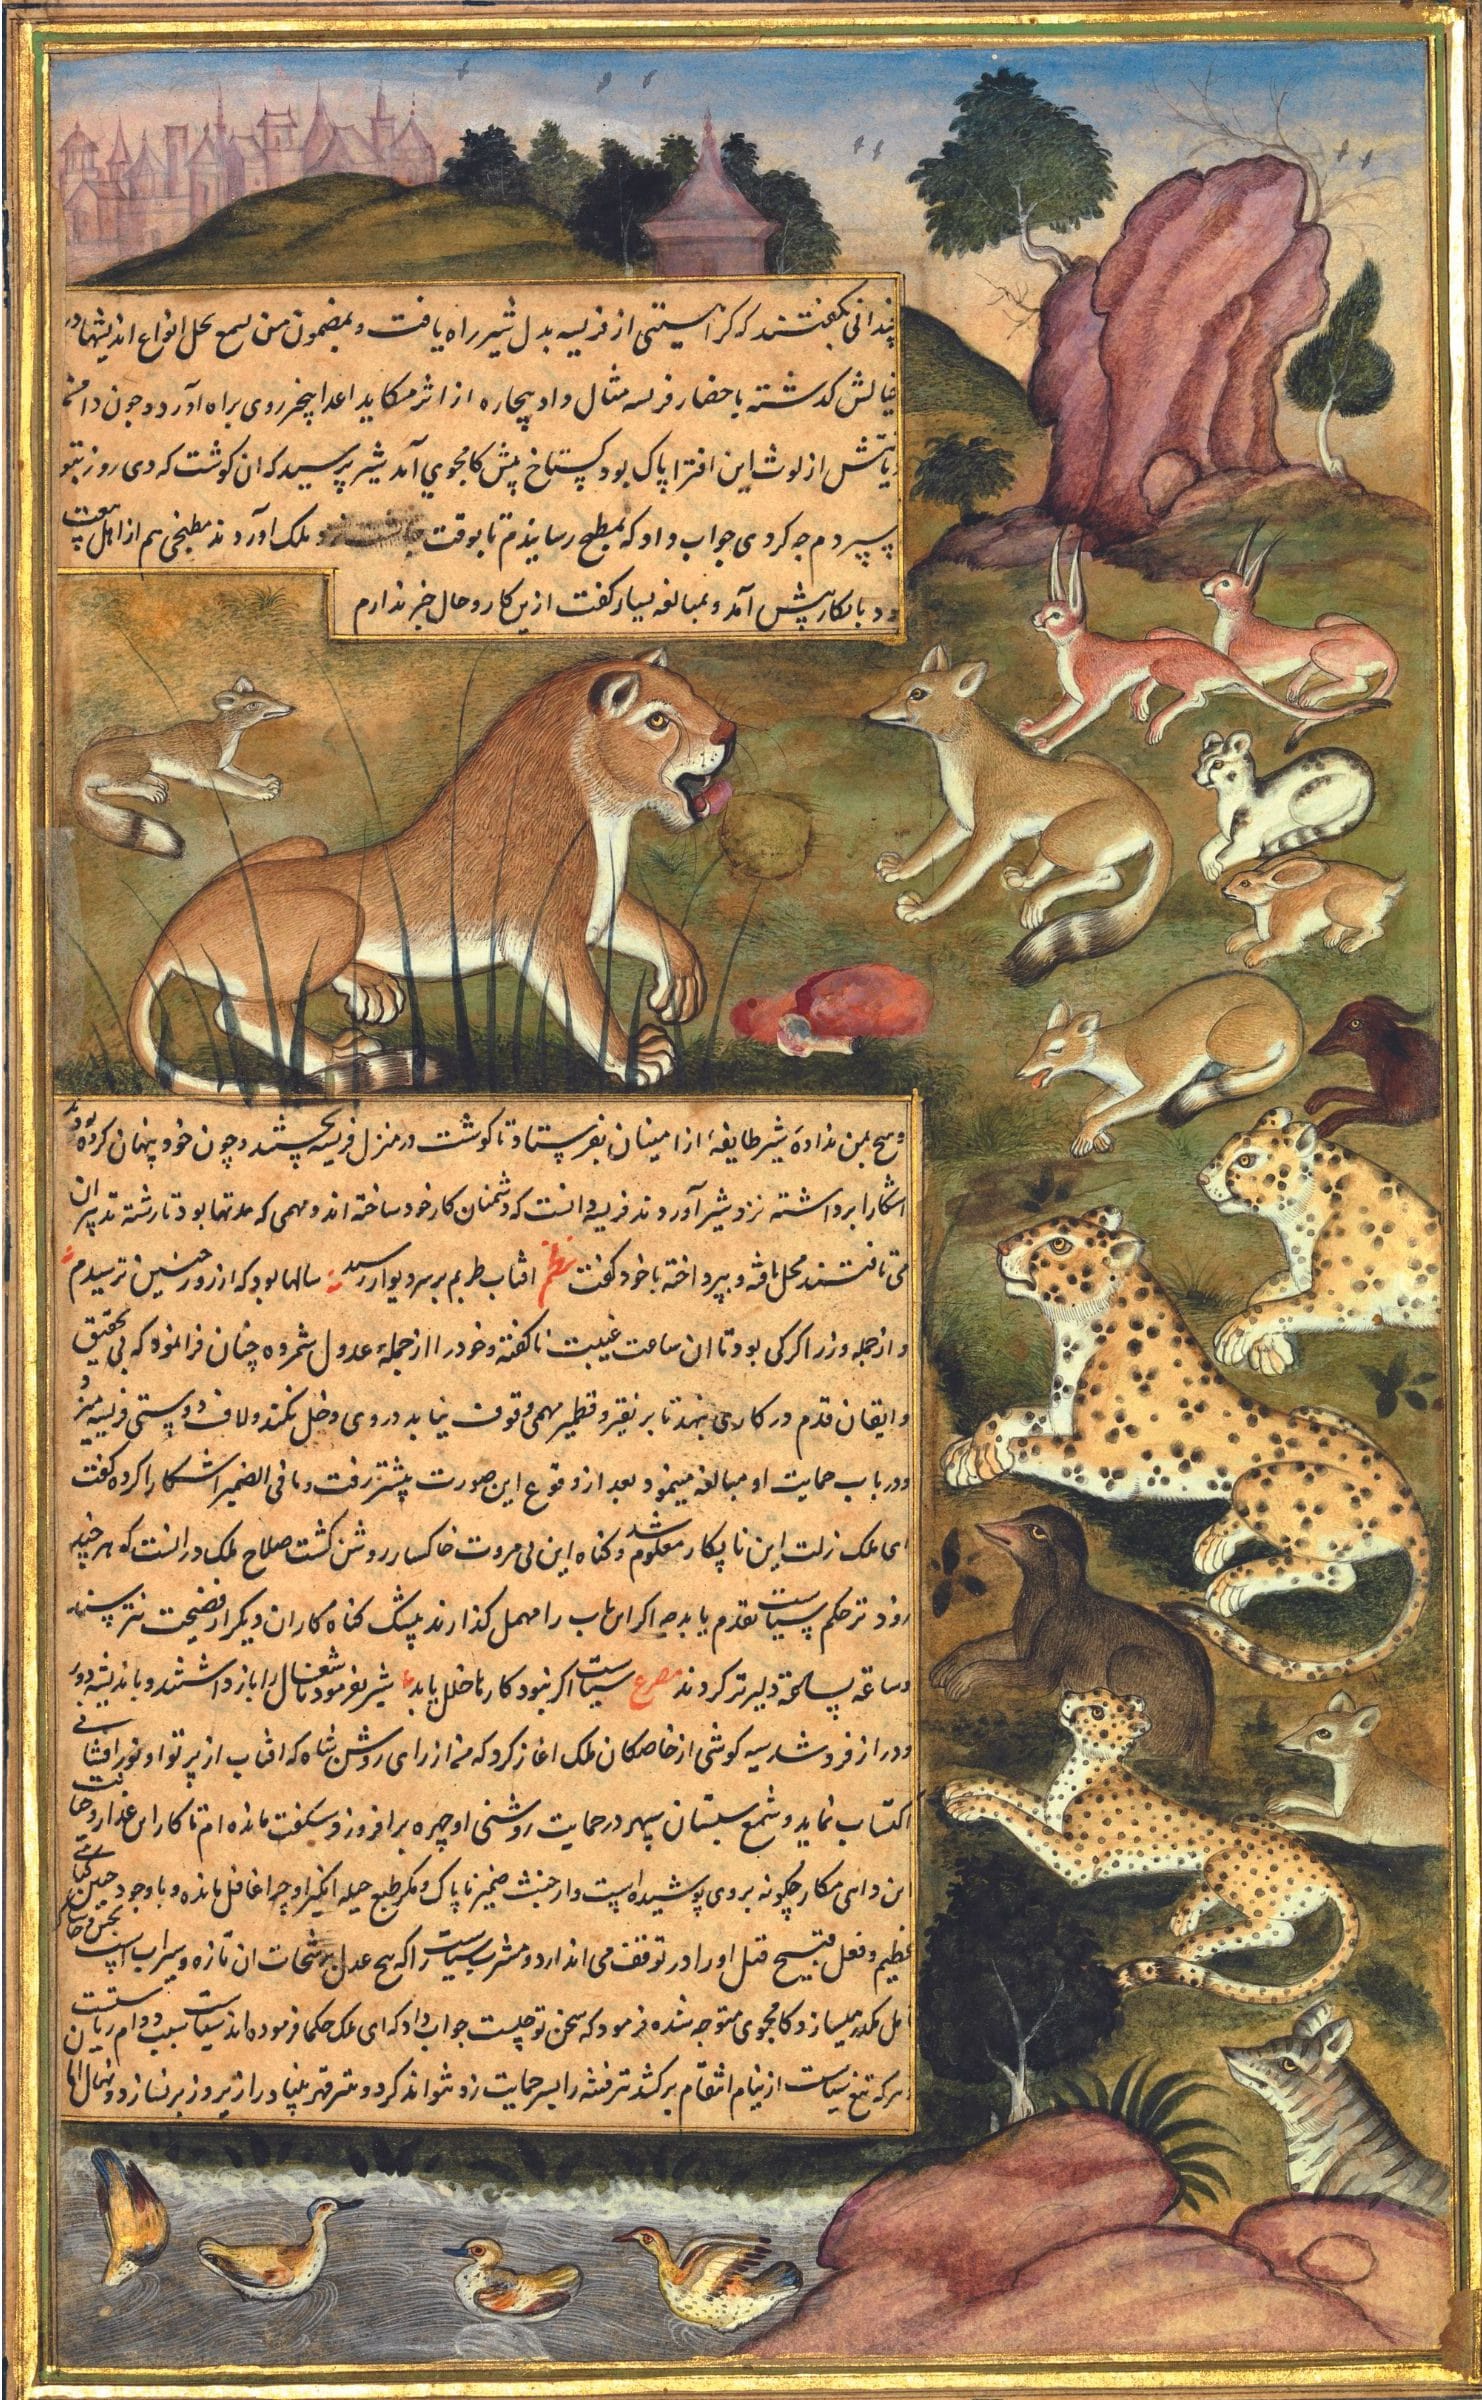 چندانی بگفتند که کراهیتی از فریسه بدل شیر راه یافت و بمضمون من یسمع یخل انواع اندیشها در
خیالش گذشته باحضار فریسه مثال داد بیچاره از اثر مکاید اعدا بیخبر روی براه آورد و چون دامن
دیانتش از لوث این افترا پاک بود کستاخ پیش کامجوی آمد شیر پرسید که ان کوشت که دی روز بتو
سپردم چه کردی جواب داد که بمطبخ رسانیدم تا بوقت چاشت نزد ملک آورند مطبخی هم از اهل بیعت
بود بانکار پیش آمد و بمبالغه بسیار کفت ازین کار و حال خبر ندارم
و هیچ بمن نداده شیر طایفهٔ از امینان بفرستاد تا کوشت در منزل فریسه بجستند و چون خود پنهان کرده بودند
اشکارا برداشته نزد شیر آوردند فریسه دانست که دشمنان کار خود ساخته اند و مهمی که مدتها بود تا رشته تدبیر ان
می تافتند محل یافته و بپرداخته با خود کفت نظم افتاب طربم بر سر دیوار رسید سالها بود که از روز چنین ترسیدم
و از جمله وزرا کرکی بود تا ان ساعت غیبت ناکفته و خود را از جملهٔ عدول شمرده چنان فرا نمود که بی تحقیق
و ایقان قدم در کاری ننهد تا بر نقیر و قطمیر مهمی وقوف نیابد در وی دخل نکند و لاف دوستی فریسه میزد
و در باب حمایت او مبالغه مینمود بعد از وقوع این صورت پیشتر رفت و ما فی الضمیر اشکارا کرده کفت
ای ملک زلت این نابکار معلوم شد و کناه این بی مروت خاکسار روشن کشت صلاح ملک در انست که هر چند
زودتر حکم سیاست تقدیم یابد چه اکر این باب را مهمل کذارند بیشک کناه کاران دیکر از فضیحت نترسند
و ساعة بساعة دلیرتر کردند مصرع سیاست اکر نبود کارها خلل یابد شیر بفرمود تا شغال را باز داشتند و باندیشه دور
و دراز فرو شد سیه کوشی از خاصکان ملک اغاز کرد که من از رای روشن شاه که افتاب از پرتو او نور افشانی
اکتساب نماید و شمع شبستان سپهر در حمایت روشنی او چهره بر افروزد شکفت مانده ام تا کار این غدار و خیانت
این داهی مکار چکونه بر وی پوشیده است و از خبث ضمیر ناپاک و مکر طبع حیله انکیز او چرا غافل مانده و با وجود چنین کناهی
عظیم و فعل قبیح قتل او را در توقف می اندازد و مشرب سیاست را که هیچ عدل برشحات ان تازه و سیراب است
مکدر میسازد کامجوی متوجه شده فرمود که سخن تو چیست جواب داد که ای ملک حکما فرموده اند سیاست سبب دوام ریاست
هر که تیغ سیاست از نیام انتقام بر نکشد فتنه را بسر حمایت زد نتواند کرد